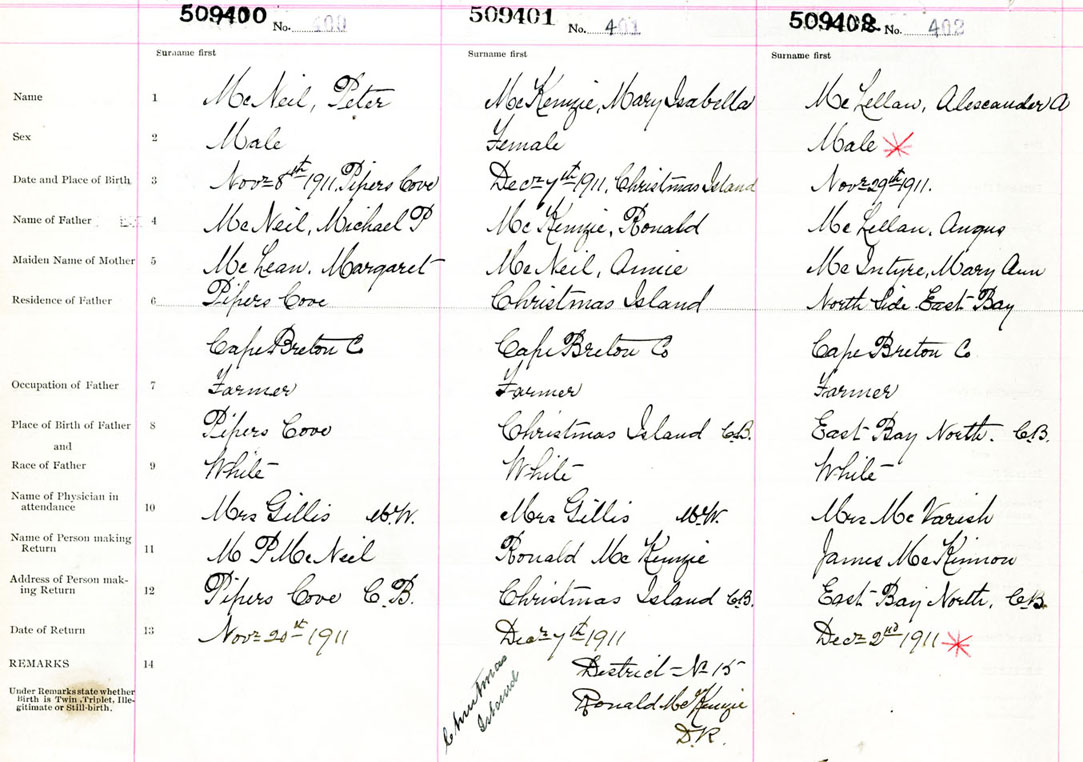 509400 No. 400 509401 No. 401 509402 No. 402
Surname first Surname first Surname first
Name 1 McNeil, Peter McKenzie, Mary Isabella McLellan, Alexander A
Sex 2 Male Female Male
Date and Place of Birth 3 Novr 8th 1911, Pipers Cove Decr 7th 1911, Christmas Island Novr 29th 1911.
Name of Father 4 McNeil, Michael P McKenzie, Ronald McLellan, Angus
Maiden Name of Mother 5 McLean, Margaret McNeil, Annie McIntyre, Mary Ann
Residence of Father 6 Pipers Cove Christmas Island North Side East Bay
Cape Breton Co Cape Breton Co Cape Breton Co
Occupation of Father 7 Farmer Farmer Farmer
Place of Birth of Father 8 Pipers Cove Christmas Island C.B. East Bay North. C.B.
and
Race of Father 9 White White White
Name of Physician in
attendance 10 Mrs Gillis M.W. Mrs Gillis M.W. Mrs McVarish
Name of Person making
Return 11 M P McNeil Ronald McKenzie James McKinnon
Address of Person mak-
ing Return 12 Pipers Cove C.B. Christmas Island C.B. East Bay North, C.B.
Date of Return 13 Novr 20st 1911 Decr 7th 1911 Decr 2nd 1911
REMARKS 14 Christmas Island District No 15
Under Remarks state whether
Birth is Twin, Triplet, Ille-
gitimate or Still-birth.
Ronald McKenzie
D.R.